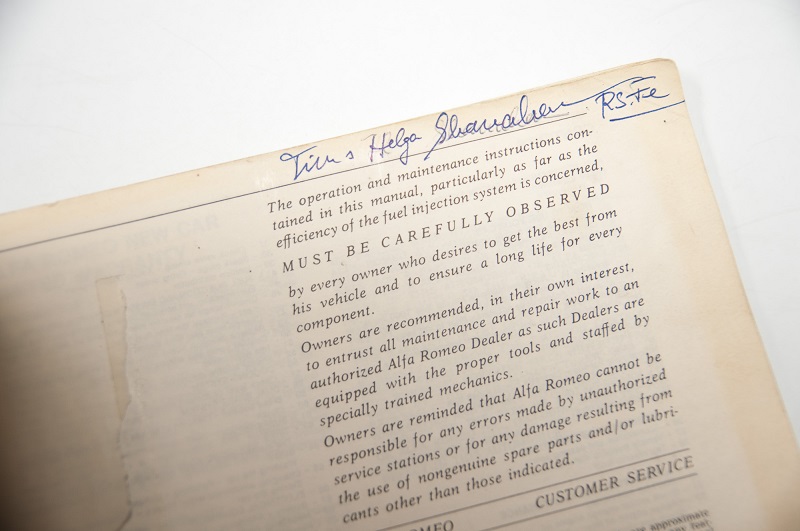 Tim & Helga Shanahan RS.Fe
The operation and maintenance instructions con-
tained in this manual, particularly as far as the
efficiency of the fuel injection system is concerned,
MUST BE CAREFULLY OBSERVED
by every owner who desires to get the best from
his vehicle and to ensure a long life for every
component.
Owners are recommended, in their own interest,
to entrust all maintenance and repair work to an
authorized Alfa Romeo Dealer as such Dealers are
equipped with the proper tools and staffed by
specially trained mechanics.
Owners are reminded that Alfa Romeo cannot be
responsible for any errors made by unauthorized
service stations or for any damage resulting from
the use of nongenuine spare parts and/or lubri-
cants other than those indicated.
OMEO CUSTOMER SERVICE
approximate